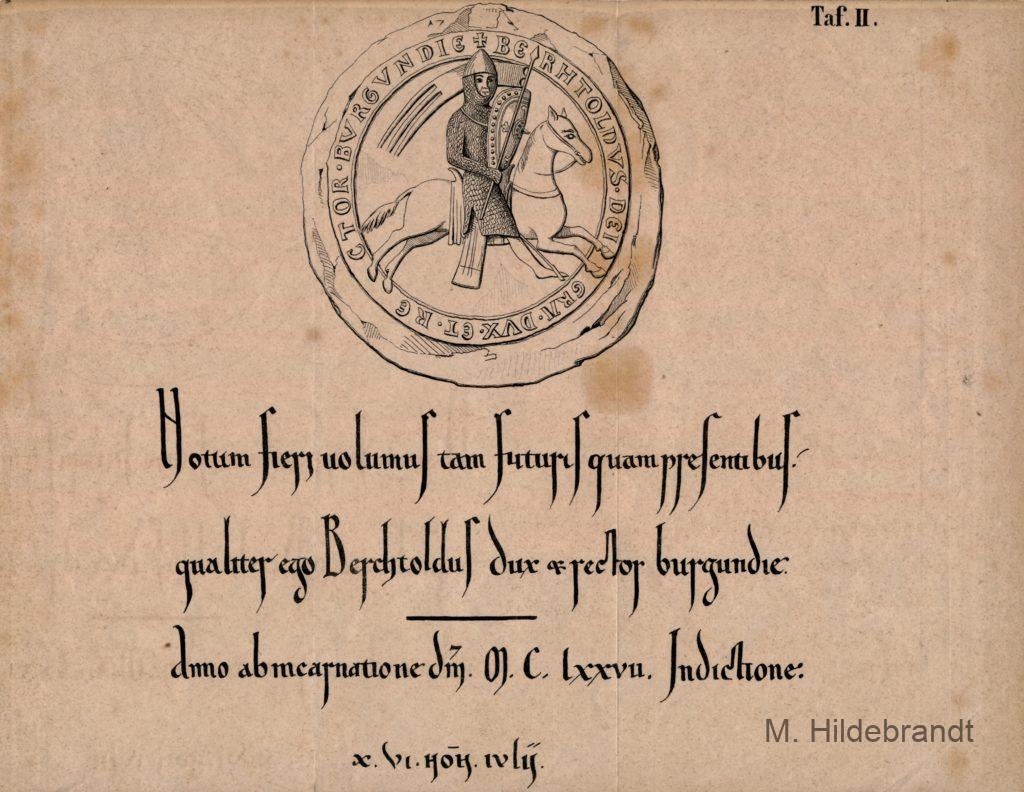 Taf. II.
✝ BERHTOLDVS · DEI GRA · DVX · ET · RECTOR · BVRGVNDIE
Notum fieri uolumus tam futuris quam presentibus.
qualiter ego Berchtoldus dux & rector burgundie.
Anno ab incarnatione dm̄. M. C. lxxvii. Indictione.
x. vi. non̄. iulii.
M. Hildebrandt